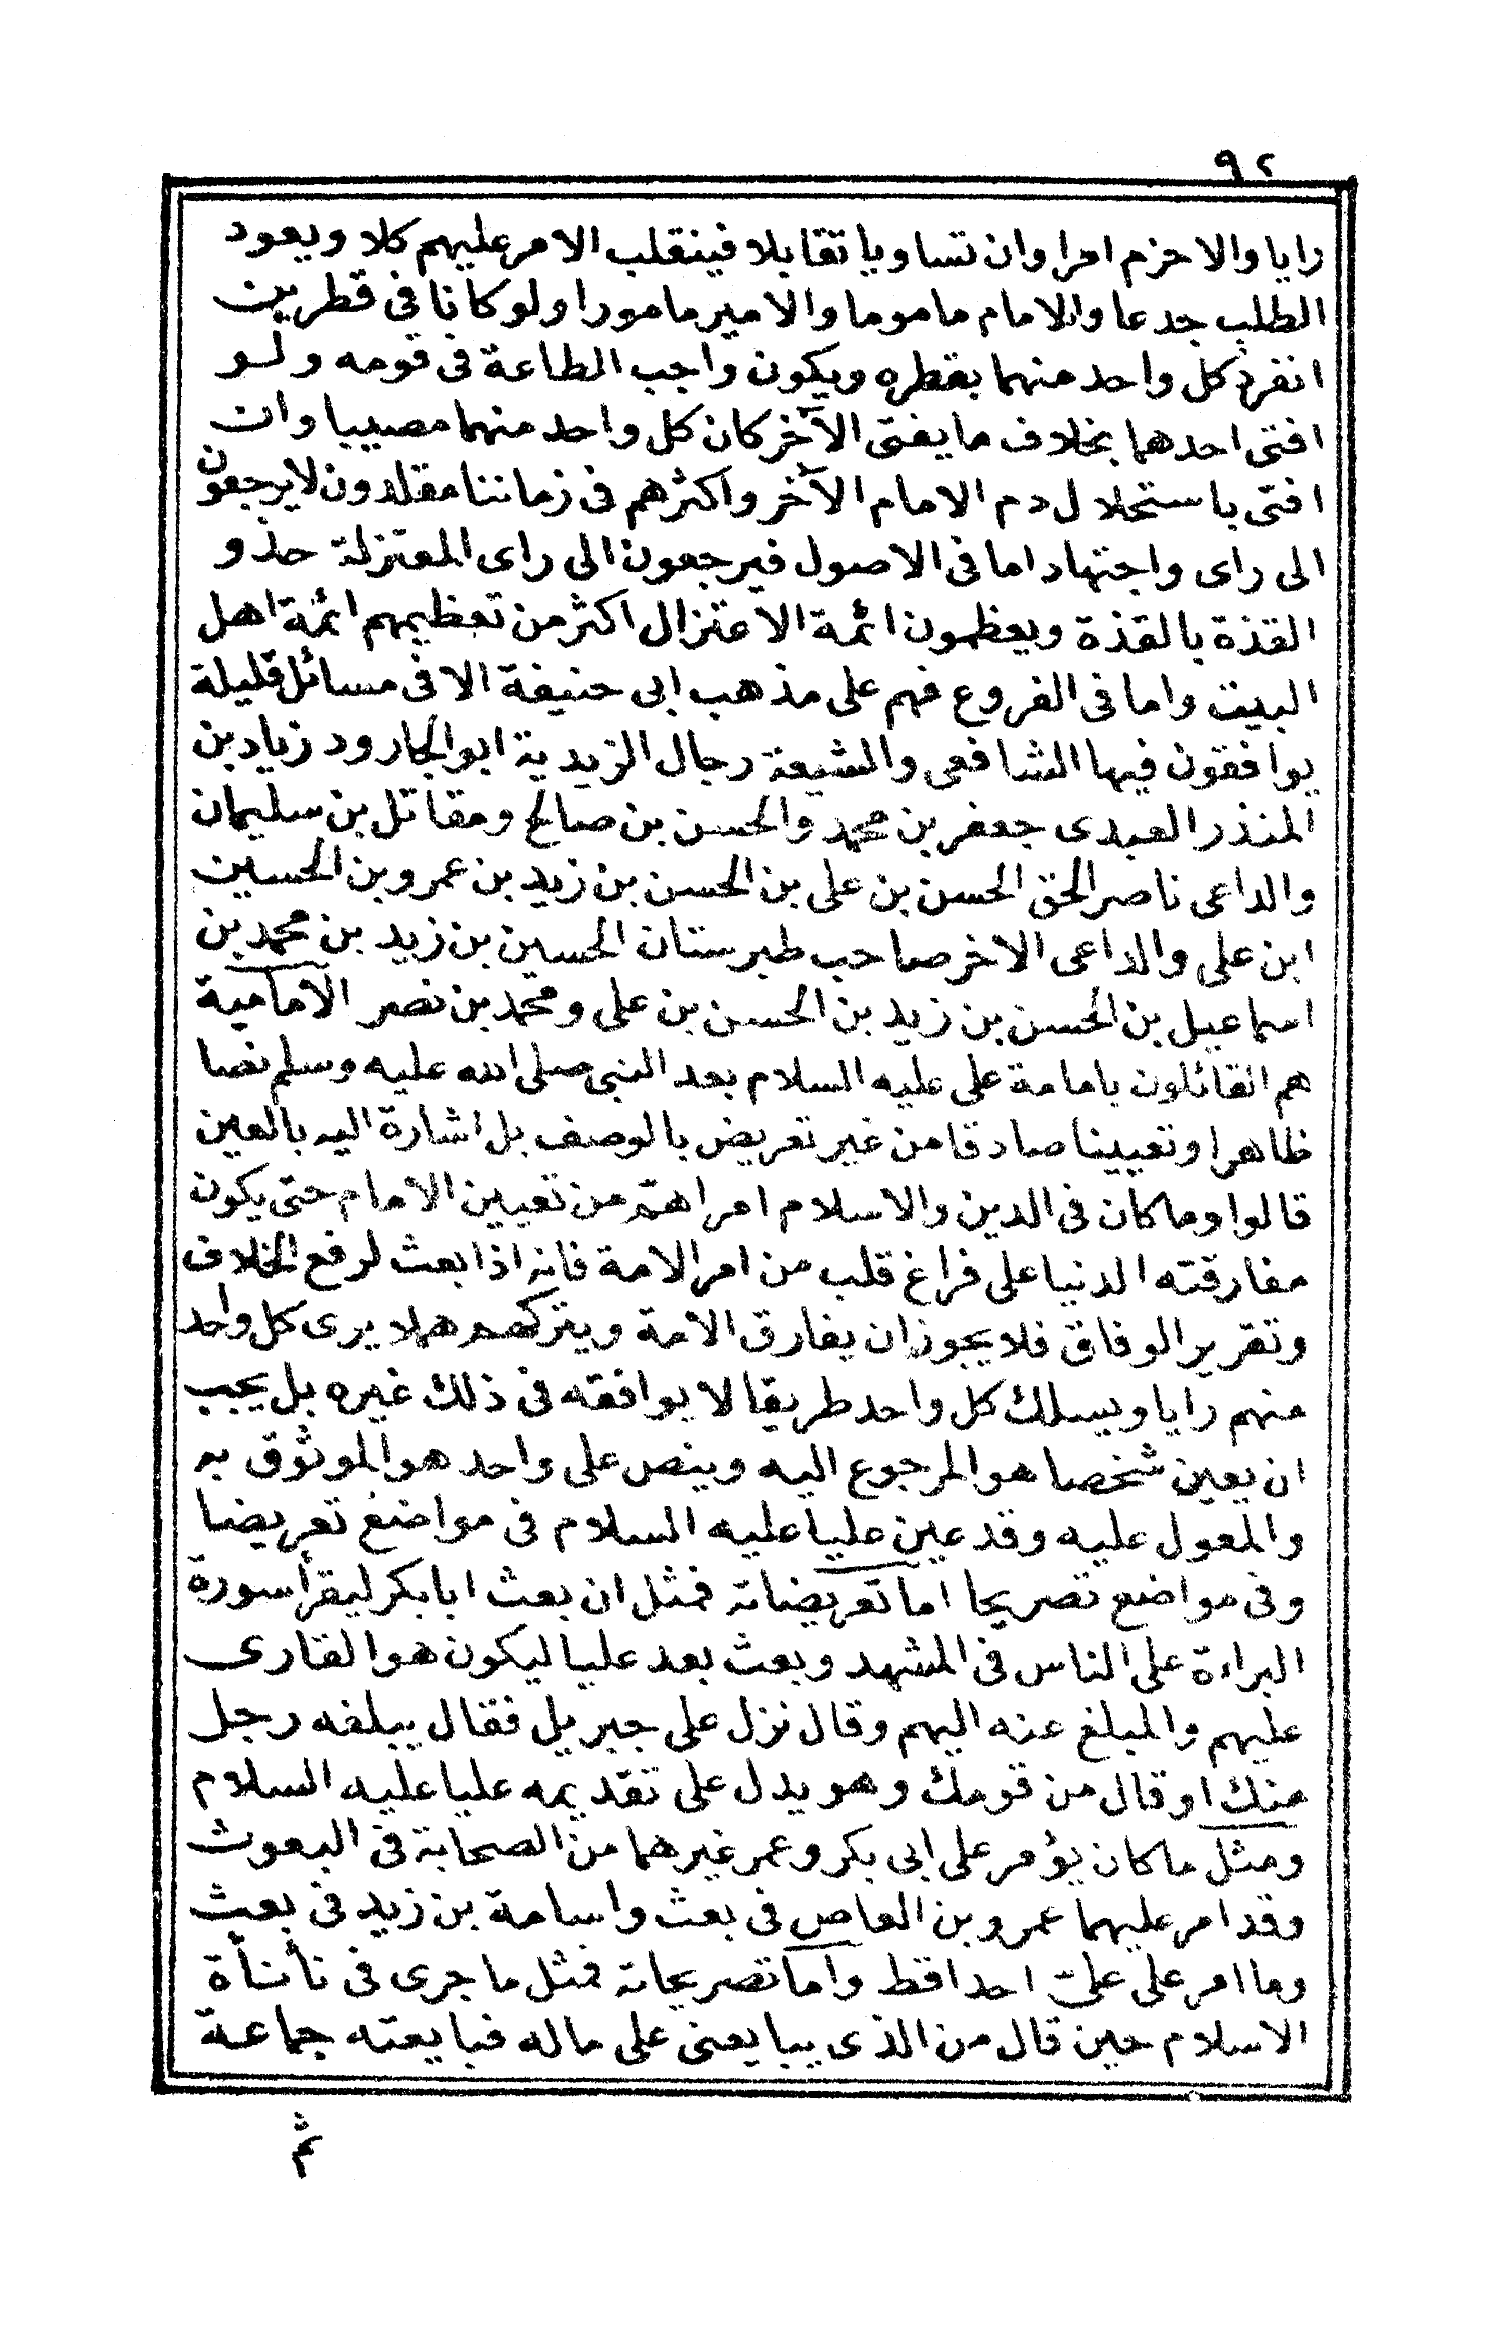 ٩٢
رايا والاحزم امرا وان تساويا تقابلا فينقلب الامر عليهم كلا ويعود
الطلب جدعا والامام ماموما والامير مامورا ولو كانا فى قطرين
انفرد كل واحد منهما بقطره ويكون واجب الطاعة فى قومه ولو
افتى احدهما بخلاف ما يفتى الآخر كان كل واحد منهما مصيبا وان
افتى باستحلال دم الامام الآخر واكثرهم فى زماننا مقلدون لا يرجعون
الى راى واجتهاد اما فى الاصول فيرجعون الى راى المعتزلة حذو
القذة بالقذة ويعظمون ائمة الاعتزال اكثر من تعظيمهم ائمة اهل
البيت واما فى الفروع فهم على مذهب ابى حنيفة الا فى مسائل قليلة
يوافقون فيها الشافعى والشيعة رجال الزيدية ابو الجارود زياد بن
المنذر العبدى جعفر بن محمد والحسن بن صالح ومقاتل بن سليمان
والداعى ناصر الحق الحسن بن على بن الحسن بن زيد بن عمرو بن الحسين
ابن على والداعى الاخر صاحب طبرستان الحسين بن زيد بن محمد بن
اسماعيل بن الحسن بن زيد بن الحسن بن على ومحمد بن نصر الامامية
هم القائلون بامامة على عليه السلام بعد النبى صلى الله عليه وسلم نصا
ظاهرا وتعيينا صادقا من غير تعريض بالوصف بل اشارة اليه بالعين
قالوا وما كان فى الدين والاسلام امر اهم من تعيين الامام حتى يكون
مفارقته الدنيا على فراغ قلب من امر الامة فانه اذا بعث لرفع الخلاف
وتقرير الوفاق فلا يجوز ان يفارق الامة ويتركهم هملا يرى كل واحد
منهم رايا ويسلك كل واحد طريقا لا يوافقه فى ذلك غيره بل يجب
ان يعين شخصا هو المرجوع اليه وينص على واحد هو الموثوق به
والمعول عليه وقد عين عليا عليه السلام فى مواضع تعريضا
وفى مواضع تصريحا اما تعريضاته فمثل ان بعث ابا بكر ليقرأ سورة
البراءة على الناس فى المشهد وبعث بعد عليا ليكون هو القارى
عليهم والمبلغ عنه اليهم وقال نزل على جبريل فقال يبلغه رجل
منك او قال من قومك وهو يدل على تقديمه عليا عليه السلام
ومثل ما كان يؤمر على ابى بكر وعمر غيرهما من الصحابة فى البعوث
وقد امر عليهما عمرو بن العاص فى بعث واسامة بن زيد فى بعث
وما امر على على احدا قط واما تصريحاته فمثل ما جرى فى نأنأة
الاسلام حين قال من الذى يبايعنى على ماله فبايعته جماعة
ثم